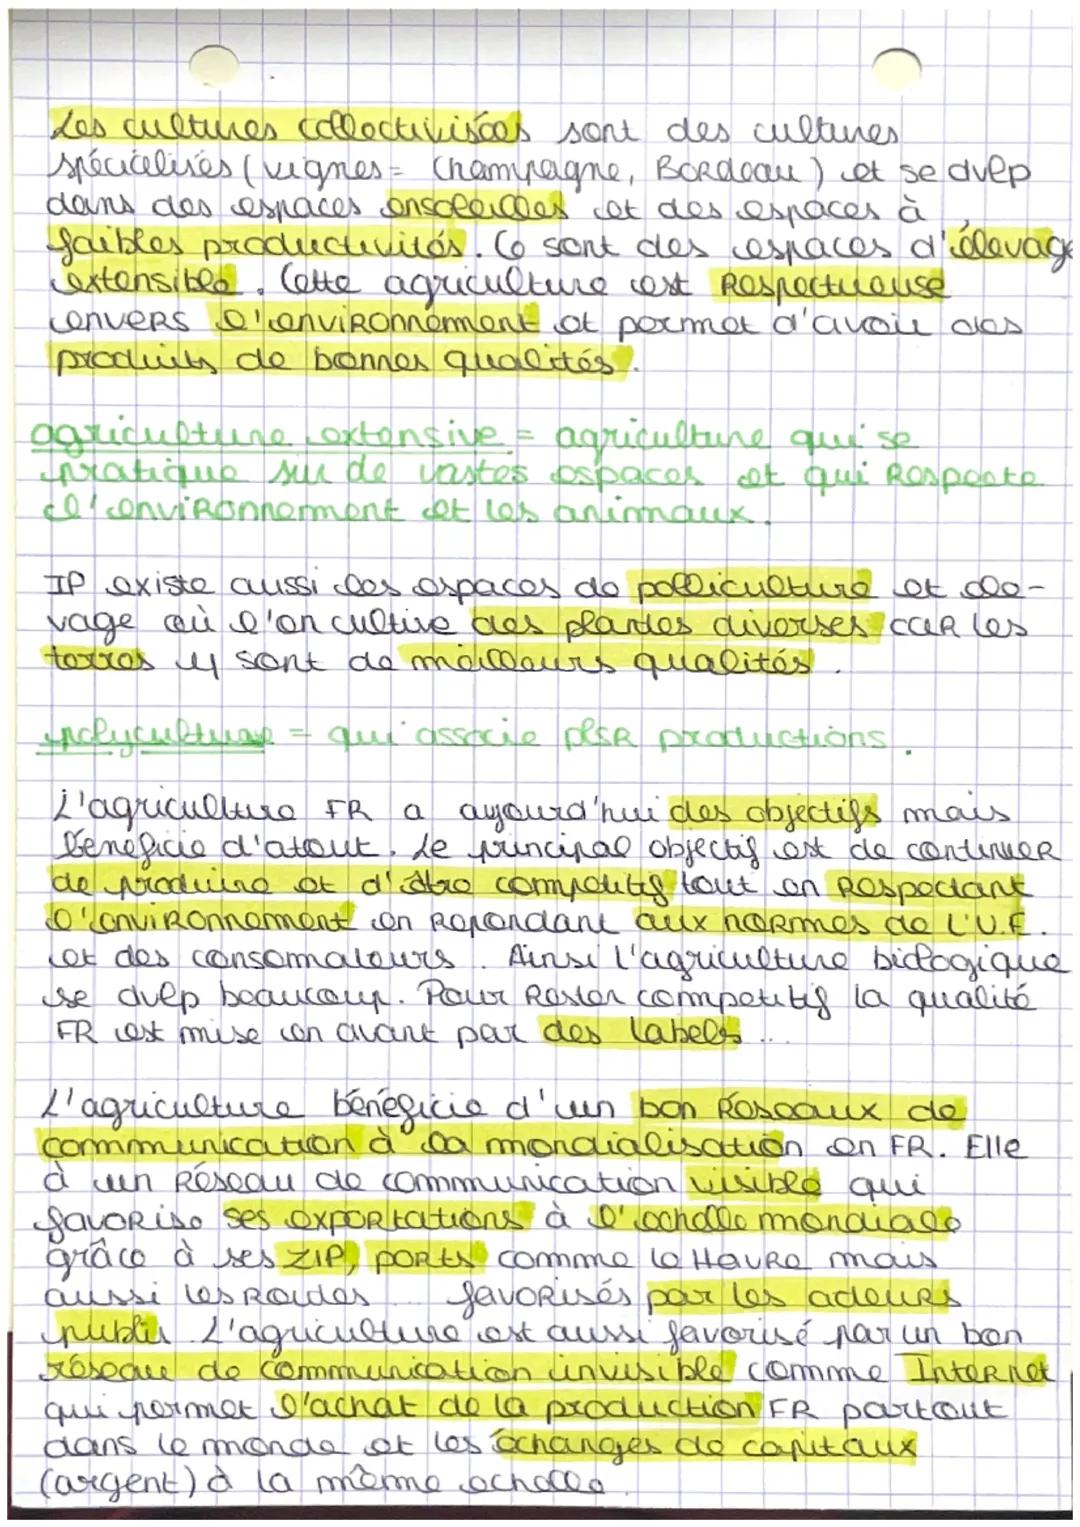 Les cultures collectivisées sont des cultures
spécialisés (vignes = Champagne, Bordeau) et se dvlp
dans des espaces ensoleilles et des espaces à
faibles productivités. Ce sont des espaces d'élevage
extensible. Cette agriculture est Respectueuse
envers l'environnement et permet d'avoir des
produits de bonnes qualités.
agriculture extensive = agriculture qui se
pratique sur de vastes espaces et qui Respecte
l'environnement et les animaux.
IP existe aussi les espaces de polliculture et éle-
vage où l'on cultive des plantes diverses car les
terres y sont de meilleurs qualités.
polyculture = qui associe plsR productions.
L'agriculture FR a aujourd'hui des objectifs mais
bénéficie d'atout. Le principal objectif est de continuer
de produire et d'être compétitif tout en Respectant
l'environnement en Repondant aux normes de L'U.E.
et des consomateurs. Ainsi l'agriculture biologique
se dvlp beaucoup. Pour Rester competitif la qualité
FR est mise en avant par des labels...
L'agriculture bénéficie d'un bon Réseaux de
commmunication à la mondialisation en FR. Elle
à un Réseau de communication visible qui
favorise ses exportations à l'echelle mondiale
grâce à ses ZIP, ports comme le Havre mais
aussi les Routes... favorisés par les acteurs
publis. L'agriculture est aussi favorisé par un bon
réseau de communication invisible comme Internet
qui permet l'achat de la production FR partout
dans le monde et les échanges de capitaux
(argent) à la même echelle.